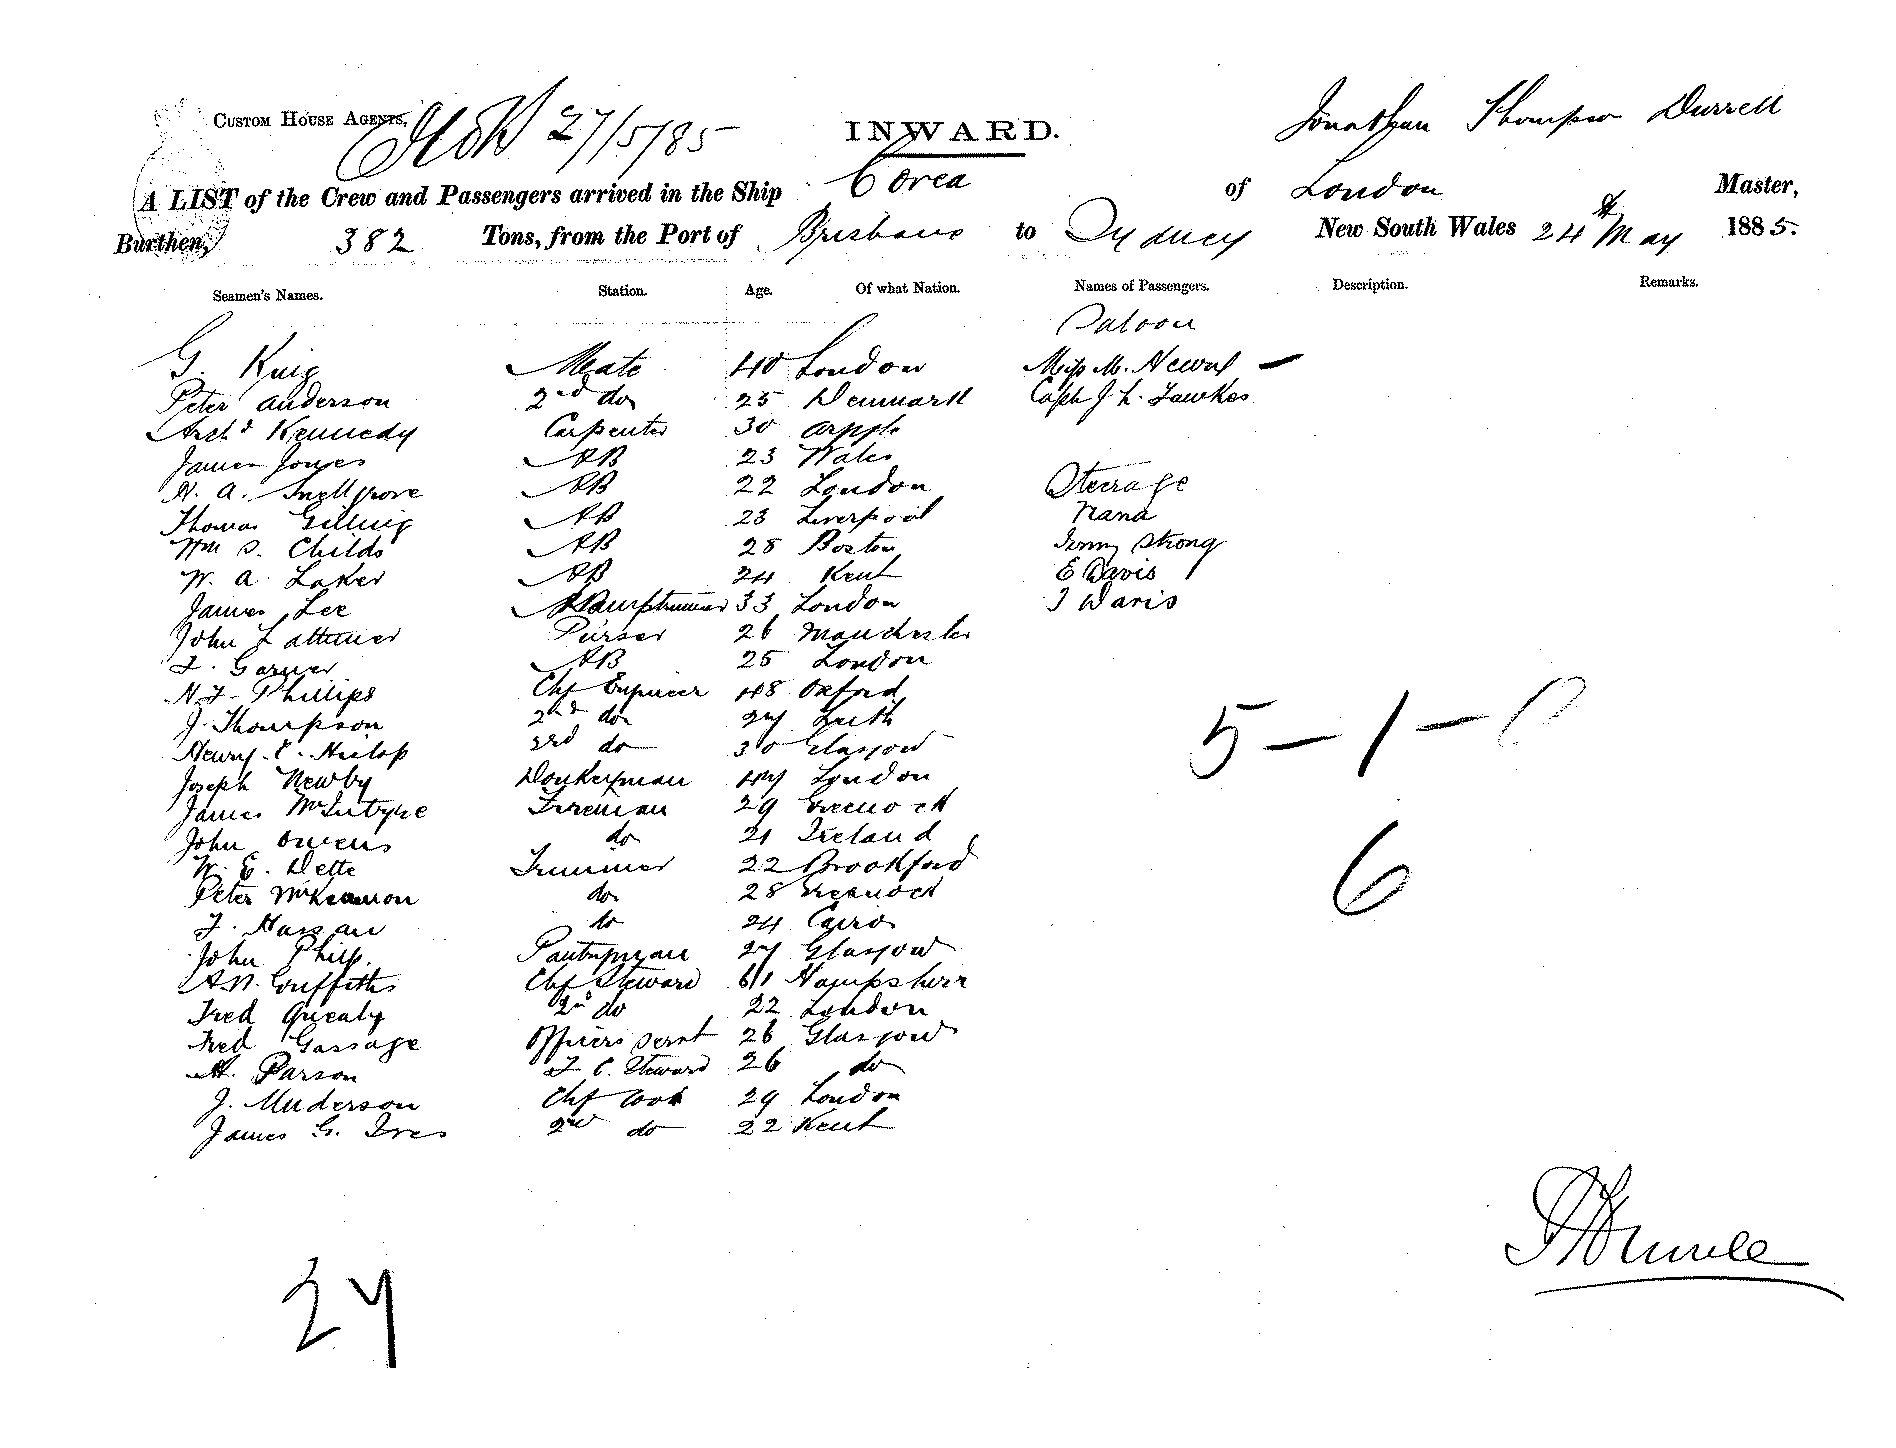 CUSTOM HOUSE AGENTS. 27/5/85
INWARD.
Jonathan Thompson Durrell
A LIST of the Crew and Passengers arrived in the Ship Corea of London Master,
Burthen, 382 Tons, from the Port of Brisbane to Sydney New South Wales 24th May 1885.
Seamen's Names. Station. Age. Of what Nation. Names of Passengers. Description. Remarks.
Saloon
G. King Mate 40 London Miss M.
Peter Anderson 2nd do 25 Denmark Capt J. H. Fawkes
Archd Kennedy Carpenter 30 Argyle
James Jones AB 23 Wales
H. A. Snellgrove AB 22 London Steerage
Thomas Gilling AB 23 Liverpool Nana
Wm S. Childs AB 28 Boston Strong
W. A. Laker AB 24 Kent E Davis
James Lee AB 33 London J Davis
John Lattimer Purser 26 Manchester
F. Garner AB 25 London
H. J. Phillips Chf Engineer 48 Oxford
J. Thompson 2nd do 27 Leith
Henry E. Hislop 3rd do 30 Glasgow
Joseph Newby Donkeyman 47 London
James McIntyre Fireman 29 Greenock
John Owens do 21 Ireland
W. E. Dette Trimmer 22 Brookford
Peter McKeamon do 28 Greenock
F. Hassan do 24 Cairo
John Philp. Pantryman 27 Glasgow
A. W. Griffiths Chf Steward 61 Hampshire
Fred Quealy 2nd do 22 London
Fred Gassage Officers Servt 26 Glasgow
H. Parson F. C. Steward 26 do
J. Muderson Chf Cook 29 London
James G. Ives 2nd do 22 Kent
5-1-0
6
27
J T Durrell